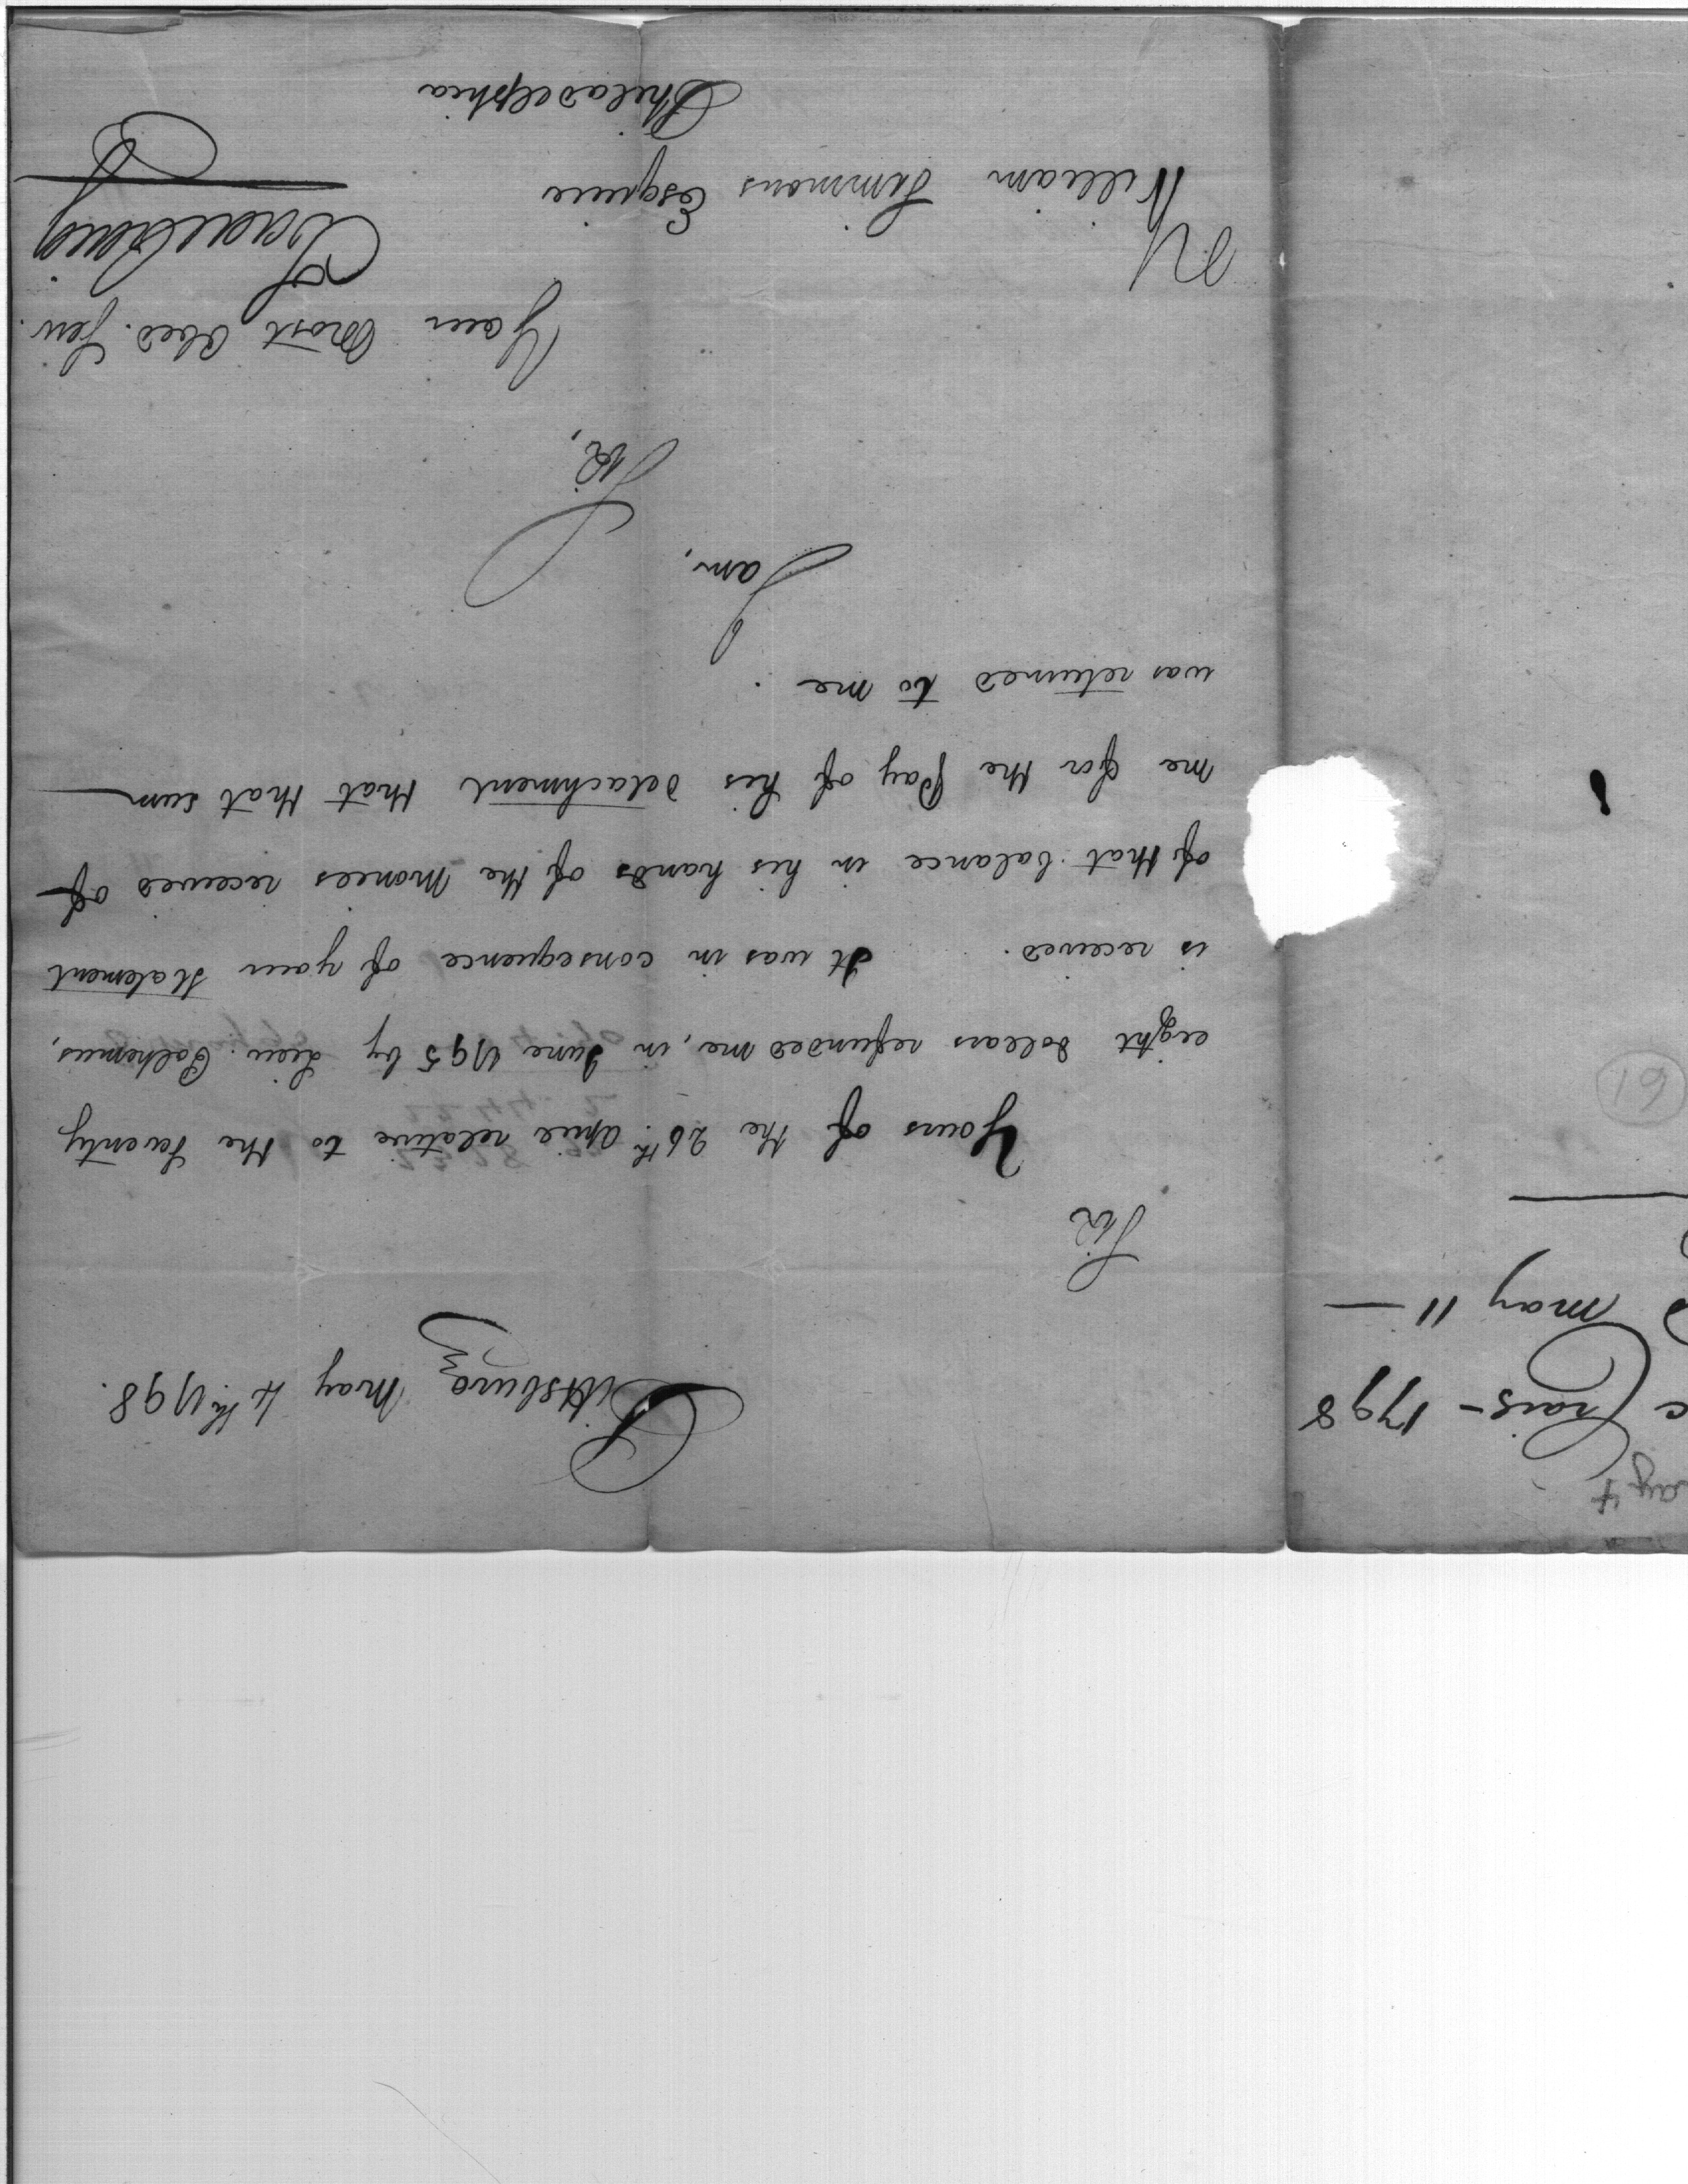 Pittsburg May 4th 1798.
Sir
Yours of the 26th April relative to the Seventy
eight dollars refunded me, in June 1795 by Lieu. Polhemus,
is received. It was in consequence of your Statement
of that balance in his hands of the Monies received of
me for the Pay of his detachment that that sum
was returned to me.
I am,
Sir,
Your Most Obed. Serv.
Isaac Craig
William Simmons Esquire
Philadelphia
ay 4
c Craig - 1798
d May 11 -
19